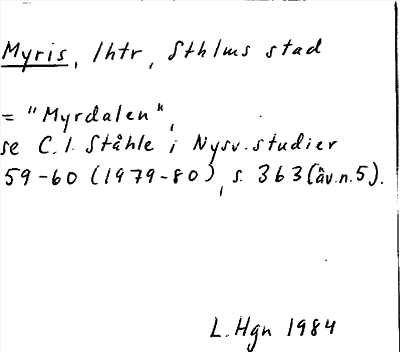 Myris, lhtr, Sthlms stad
= "Myrdalen",
se C.I. Ståhle i Nysv. studier
59-60 (1979-80), s. 363 (äv. n. 5).
L. Hgn 1984